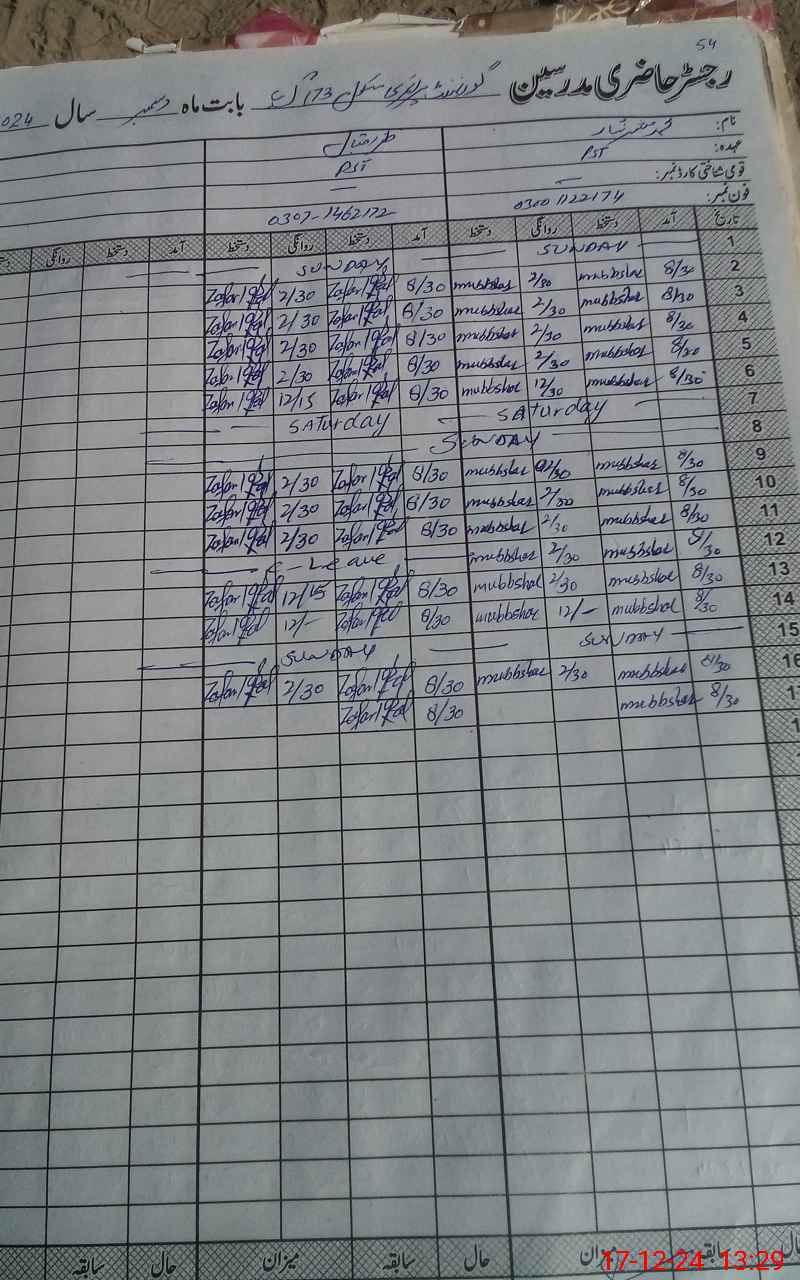 54
رجسٹر حاضری مدرسین گورنمنٹ پرائمری سکول 173 بابت ماہ دسمبر سال 2024
نام: محمد مبشر ظفر اقبال
عہدہ: PST PST
قومی شناختی کارڈ نمبر: — —
فون نمبر: 0300 1122174 0307-1462172
تاریخ آمد دستخط روانگی دستخط آمد دستخط روانگی دستخط آمد دستخط روانگی
1 SUNDAY SUNDAY
2 8/30 mubbshar 2/30 mubbshar 8/30 Zafar Iqbal 2/30 Zafar Iqbal
3 8/30 mubbshar 2/30 mubbshar 8/30 Zafar Iqbal 2/30 Zafar Iqbal
4 8/30 mubbshar 2/30 mubbshar 8/30 Zafar Iqbal 2/30 Zafar Iqbal
5 8/30 mubbshar 2/30 mubbshar 8/30 Zafar Iqbal 2/30 Zafar Iqbal
6 8/30 mubbshar 12/30 mubbshar 8/30 Zafar Iqbal 12/15 Zafar Iqbal
7 SATurday SATurday
8 SUNDAY
9 8/30 mubbshar 2/30 mubbshar 8/30 Zafar Iqbal 2/30 Zafar Iqbal
10 8/30 mubbshar 2/30 mubbshar 8/30 Zafar Iqbal 2/30 Zafar Iqbal
11 8/30 mubbshar 2/30 mubbshar 8/30 Zafar Iqbal 2/30 Zafar Iqbal
12 8/30 mubbshar 2/30 mubbshar C-Leave
13 8/30 mubbshar 2/30 mubbshar 8/30 Zafar Iqbal 12/15 Zafar Iqbal
14 8/30 mubbshar 12/- mubbshar 8/30 Zafar Iqbal 12/- Zafar Iqbal
15 SUNDAY SUNDAY
16 8/30 mubbshar 2/30 mubbshar 8/30 Zafar Iqbal 2/30 Zafar Iqbal
8/30 mubbshar 8/30 Zafar Iqbal
سابقہ میزان حال سابقہ میزان حال سابقہ
17-12-24 13:29